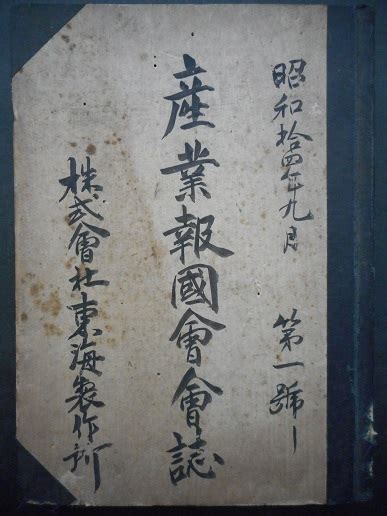 昭和拾四年九月 第一號ー
産業報國會會誌
株式會社東海製作所